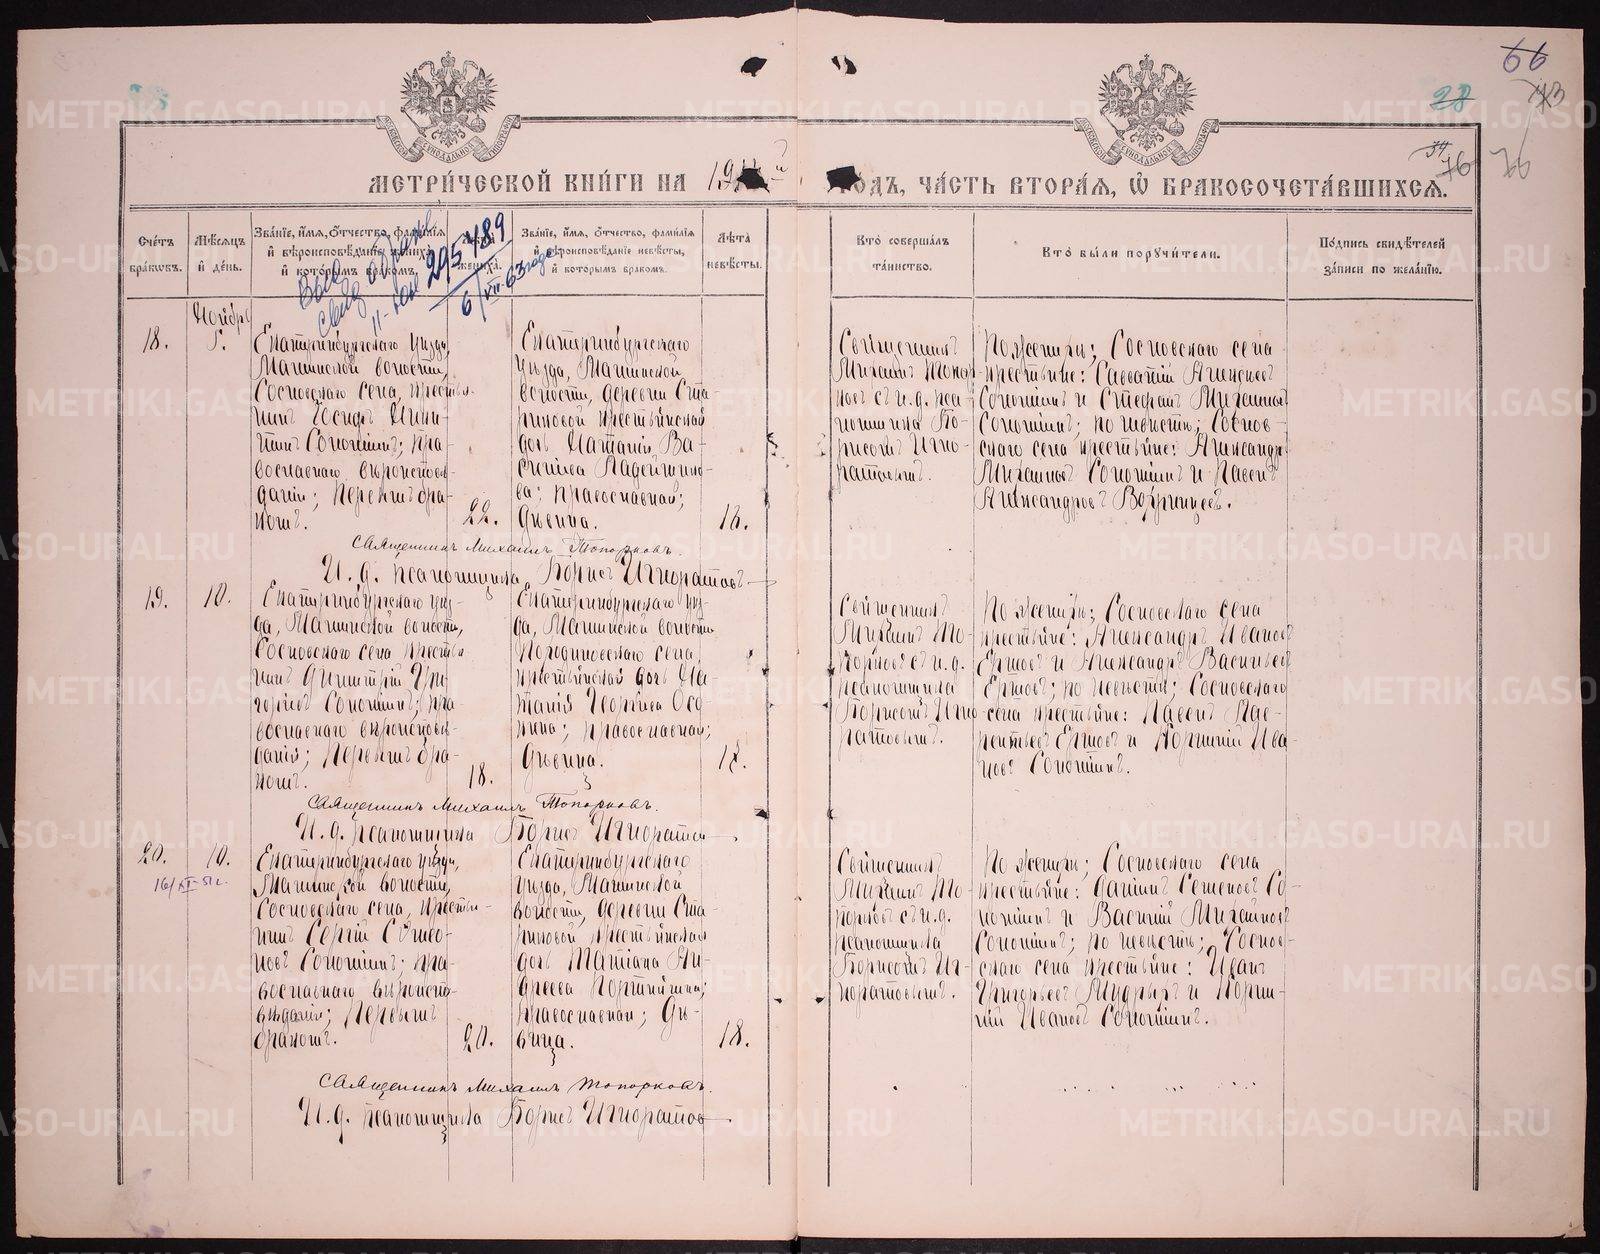 66
28
43
34
76
76
МЕТРИ́ЧЕСКОЙ КНИ́ГИ НА 191
ГО́ДЪ, ЧА́СТЬ ВТОРА́Я, Ѡ БРАКОСОЧЕТА́ВШИХСЯ.
Сче́тъ бра́ковъ.
Мѣ́сяцъ и҆ де́нь.
Зва́нїе, и҆́мя, ѻ҆́тчество, фами́лїя
и҆ вѣроисповѣ́данїе жениха̀,
и҆ кото́рымъ бра́комъ.
Лѣ́та жениха̀.
Зва́нїе, и҆́мя, ѻ҆́тчество, фами́лїя
и҆ вѣроисповѣ́данїе невѣ́сты,
и҆ кото́рымъ бра́комъ.
Лѣ́та невѣ́сты.
Кто̀ соверша́лъ та́инство.
Кто̀ бы́ли поручи́тели.
По́дпись свидѣ́телей за́писи по жела́нїю.
295489
6/VII-63 года
18.
Ноября
5.
Екатеринбургскаго уѣзда,
Маминской волости,
Сосновскаго села, крестья-
нинъ Іосифъ Ники-
тинъ Сономинъ; пра-
вославнаго вѣроисповѣ-
данія; первымъ бра-
комъ.
22.
Екатеринбургскаго
уѣзда, Маминской
волости, деревни Ста-
риковой крестьянская
дочь Наталія Ва-
сильева Ладейщико-
ва; православная;
дѣвица.
18.
Священникъ
Михаилъ Топор-
ковъ съ и. д. пса-
ломщика Бо-
рисомъ Игно-
ратовымъ.
По женихѣ; Сосновскаго села
крестьяне: Савватій Алексѣевъ
Сономинъ и Стефанъ Михаиловъ
Сономинъ; по невѣстѣ; Соснов-
скаго села крестьяне: Александръ
Михаиловъ Сономинъ и Павелъ
Александровъ Вохринцевъ.
Священникъ Михаилъ Топорковъ.
И. д. псаломщика Борисъ Игноратовъ
19.
10.
Екатеринбургскаго уѣз-
да, Маминской волости,
Сосновскаго села крестья-
нинъ Димитрій Гри-
горьевъ Сономинъ; пра-
вославнаго вѣроисповѣ-
данія; первымъ бра-
комъ.
18.
Екатеринбургскаго уѣз-
да, Маминской волости
села,
крестьянская дочь На-
талія Георгіева Осо-
кина; православная;
дѣвица.
Священникъ
Михаилъ То-
порковъ съ и. д.
псаломщика
Борисомъ Игно-
ратовымъ.
По женихѣ; Сосновскаго села
крестьяне: Александръ Ивановъ
Ершовъ и Александръ Васильевъ
Ершовъ; по невѣстѣ; Сосновскаго
села крестьяне: Павелъ Лав-
рентьевъ Ершовъ и Корнилій Ива-
новъ Сономинъ.
Священникъ Михаилъ Топорковъ.
И. д. псаломщика Борисъ Игноратовъ
20.
16/XI-51 г.
10.
Екатеринбургскаго уѣзда,
Маминской волости,
Сосновскаго села, крестья-
нинъ Сергій Симео-
новъ Сономинъ; пра-
вославнаго вѣроиспо-
вѣданія; первымъ
бракомъ.
20.
Екатеринбургскаго
уѣзда, Маминской
волости, деревни Ста-
риковой крестьянская
дочь Татіана Ан-
дреева
православная; дѣ-
вица.
18.
Священникъ
Михаилъ То-
порковъ съ и. д.
псаломщика
Борисомъ Иг-
норатовымъ.
По женихѣ; Сосновскаго села
крестьяне: Даніилъ Семеновъ Со-
номинъ и Василій Михаиловъ
Сономинъ; по невѣстѣ; Соснов-
скаго села крестьяне: Иванъ
Григорьевъ Мудрыхъ и Корни-
лій Ивановъ Сономинъ.
Священникъ Михаилъ Топорковъ.
И. д. псаломщика Борисъ Игноратовъ
METRIKI.GASO-URAL.RU